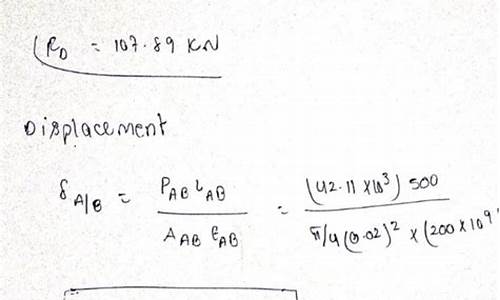 R_D = 107.89 KN
Displacement
δ_A/B = P_AB L_AB / A_AB E_AB = (42.11 x10^3) 500 / π/4 (0.02)^2 x (200 x 10^9